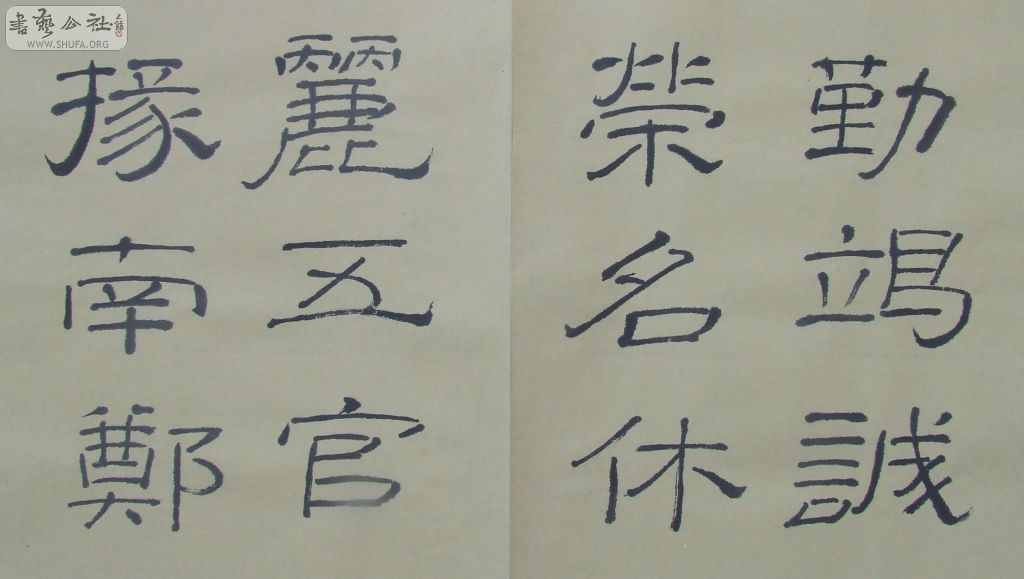 勤竭誠
榮名休
麗五官
掾南鄭
書藝公社
WWW.SHUFA.ORG